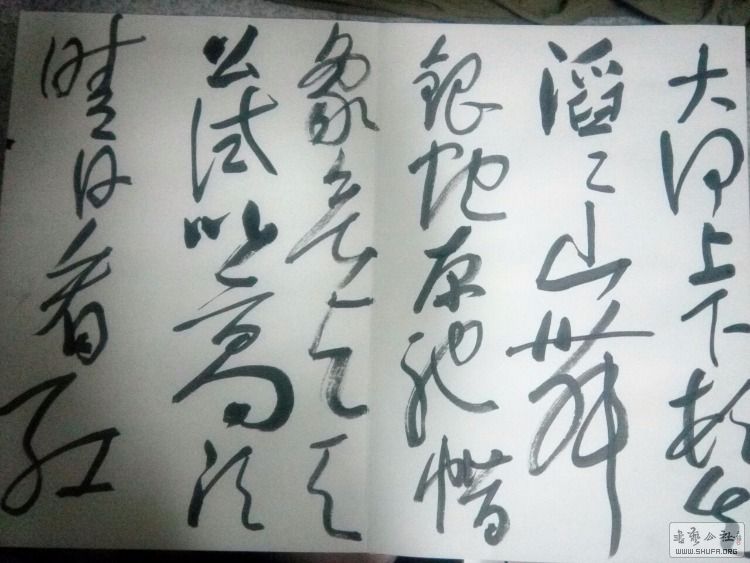 大河上下顿失
滔〻山舞
银蛇原驰蜡
象欲与天
公试比高须
晴日看红
書藝公社
WWW.SHUFA.ORG